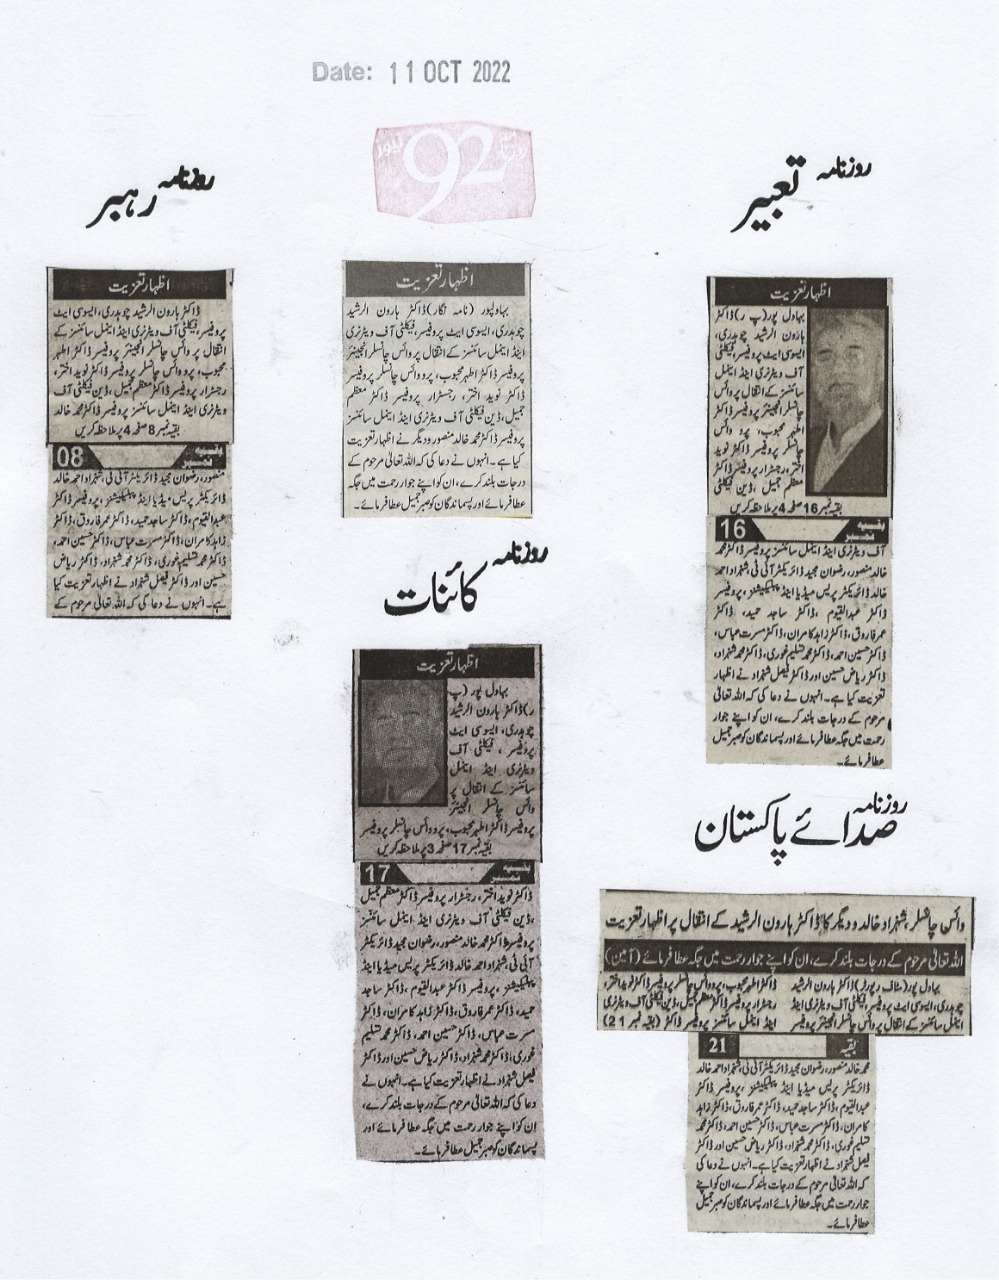 Date: 11 OCT 2022
روزنامہ رہبر
اظہار تعزیت
ڈاکٹر ہارون الرشید چوہدری، ایسوسی ایٹ
پروفیسر، فیکلٹی آف ویٹرنری اینڈ اینمل سائنسز کے
انتقال پر وائس چانسلر انجینئر پروفیسر ڈاکٹر اطہر
محبوب، پرو وائس چانسلر پروفیسر ڈاکٹر نوید اختر،
رجسٹرار پروفیسر ڈاکٹر معظم جمیل، ڈین فیکلٹی آف
ویٹرنری اینڈ اینمل سائنسز پروفیسر ڈاکٹر محمد خالد
بقیہ نمبر 8 صفحہ 4 پر ملاحظہ کریں
بقیہ نمبر 08
منصور، رضوان مجید ڈائریکٹر آئی ٹی، شہزاد احمد خالد
ڈائریکٹر پریس میڈیا اینڈ پبلیکیشنز، پروفیسر ڈاکٹر
عبدالقیوم، ڈاکٹر ساجد حمید، ڈاکٹر عمر فاروق، ڈاکٹر
زاہد کامران، ڈاکٹر مسرت عباس، ڈاکٹر حسین احمد،
ڈاکٹر محمد تسلیم غوری، ڈاکٹر محمد شہزاد، ڈاکٹر ریاض
حسین اور ڈاکٹر فیصل شہزاد نے اظہار تعزیت کیا
ہے۔ انہوں نے دعا کی کہ اللہ تعالیٰ مرحوم کے
روزنامہ 92 نیوز
اظہار تعزیت
بہاولپور (نامہ نگار) ڈاکٹر ہارون الرشید
چوہدری، ایسوسی ایٹ پروفیسر، فیکلٹی آف ویٹرنری
اینڈ اینمل سائنسز کے انتقال پر وائس چانسلر انجینئر
پروفیسر ڈاکٹر اطہر محبوب، پرو وائس چانسلر پروفیسر
ڈاکٹر نوید اختر، رجسٹرار پروفیسر ڈاکٹر معظم
جمیل، ڈین فیکلٹی آف ویٹرنری اینڈ اینمل سائنسز
پروفیسر ڈاکٹر محمد خالد منصور و دیگر نے اظہار تعزیت
کیا ہے۔ انہوں نے دعا کی کہ اللہ تعالیٰ مرحوم کے
درجات بلند کرے، ان کو اپنے جوار رحمت میں جگہ
عطا فرمائے اور پسماندگان کو صبر جمیل عطا فرمائے۔
روزنامہ تعبیر
اظہار تعزیت
بہاول پور (پ ر) ڈاکٹر
ہارون الرشید چوہدری،
ایسوسی ایٹ پروفیسر، فیکلٹی
آف ویٹرنری اینڈ اینمل
سائنسز کے انتقال پر وائس
چانسلر انجینئر پروفیسر ڈاکٹر
اطہر محبوب، پرو وائس
چانسلر پروفیسر ڈاکٹر نوید
اختر، رجسٹرار پروفیسر ڈاکٹر
معظم جمیل، ڈین فیکلٹی
بقیہ نمبر 16 صفحہ 4 پر ملاحظہ کریں
بقیہ نمبر 16
آف ویٹرنری اینڈ اینمل سائنسز پروفیسر ڈاکٹر محمد
خالد منصور، رضوان مجید ڈائریکٹر آئی ٹی، شہزاد احمد
خالد ڈائریکٹر پریس میڈیا اینڈ پبلیکیشنز، پروفیسر
ڈاکٹر عبدالقیوم، ڈاکٹر ساجد حمید، ڈاکٹر
عمر فاروق، ڈاکٹر زاہد کامران، ڈاکٹر مسرت عباس،
ڈاکٹر حسین احمد، ڈاکٹر محمد تسلیم غوری، ڈاکٹر محمد شہزاد،
ڈاکٹر ریاض حسین اور ڈاکٹر فیصل شہزاد نے اظہار
تعزیت کیا ہے۔ انہوں نے دعا کی کہ اللہ تعالیٰ
مرحوم کے درجات بلند کرے، ان کو اپنے جوار
رحمت میں جگہ عطا فرمائے اور پسماندگان کو صبر جمیل
عطا فرمائے۔
روزنامہ کائنات
اظہار تعزیت
بہاول پور (پ
ر) ڈاکٹر ہارون الرشید
چوہدری، ایسوسی ایٹ
پروفیسر، فیکلٹی آف
ویٹرنری اینڈ اینمل
سائنسز کے انتقال پر
وائس چانسلر انجینئر
پروفیسر ڈاکٹر اطہر محبوب، پرو وائس چانسلر پروفیسر
بقیہ نمبر 17 صفحہ 3 پر ملاحظہ کریں
بقیہ نمبر 17
ڈاکٹر نوید اختر، رجسٹرار پروفیسر ڈاکٹر معظم جمیل
، ڈین فیکلٹی آف ویٹرنری اینڈ اینمل سائنسز
پروفیسر ڈاکٹر محمد خالد منصور، رضوان مجید ڈائریکٹر
آئی ٹی، شہزاد احمد خالد ڈائریکٹر پریس میڈیا اینڈ
پبلیکیشنز، پروفیسر ڈاکٹر عبدالقیوم، ڈاکٹر ساجد
حمید، ڈاکٹر عمر فاروق، ڈاکٹر زاہد کامران، ڈاکٹر
مسرت عباس، ڈاکٹر حسین احمد، ڈاکٹر محمد تسلیم
غوری، ڈاکٹر محمد شہزاد، ڈاکٹر ریاض حسین اور ڈاکٹر
فیصل شہزاد نے اظہار تعزیت کیا ہے۔ انہوں نے
دعا کی کہ اللہ تعالیٰ مرحوم کے درجات بلند کرے،
ان کو اپنے جوار رحمت میں جگہ عطا فرمائے اور
پسماندگان کو صبر جمیل عطا فرمائے۔
روزنامہ صدائے پاکستان
وائس چانسلر، شہزاد خالد و دیگر کا ڈاکٹر ہارون الرشید کے انتقال پر اظہار تعزیت
اللہ تعالیٰ مرحوم کے درجات بلند کرے، ان کو اپنے جوار رحمت میں جگہ عطا فرمائے (آمین)
بہاول پور (سٹاف رپورٹر) ڈاکٹر ہارون الرشید
چوہدری، ایسوسی ایٹ پروفیسر، فیکلٹی آف ویٹرنری اینڈ
اینمل سائنسز کے انتقال پر وائس چانسلر انجینئر پروفیسر
ڈاکٹر اطہر محبوب، پرو وائس چانسلر پروفیسر ڈاکٹر نوید اختر،
رجسٹرار پروفیسر ڈاکٹر معظم جمیل، ڈین فیکلٹی آف ویٹرنری
اینڈ اینمل سائنسز پروفیسر ڈاکٹر (بقیہ نمبر 21)
بقیہ 21
محمد خالد منصور، رضوان مجید ڈائریکٹر آئی ٹی، شہزاد احمد خالد
ڈائریکٹر پریس میڈیا اینڈ پبلیکیشنز، پروفیسر ڈاکٹر
عبدالقیوم، ڈاکٹر ساجد حمید، ڈاکٹر عمر فاروق، ڈاکٹر زاہد
کامران، ڈاکٹر مسرت عباس، ڈاکٹر حسین احمد، ڈاکٹر محمد
تسلیم غوری، ڈاکٹر محمد شہزاد، ڈاکٹر ریاض حسین اور ڈاکٹر
فیصل شہزاد نے اظہار تعزیت کیا ہے۔ انہوں نے دعا کی
کہ اللہ تعالیٰ مرحوم کے درجات بلند کرے، ان کو اپنے
جوار رحمت میں جگہ عطا فرمائے اور پسماندگان کو صبر جمیل
عطا فرمائے۔